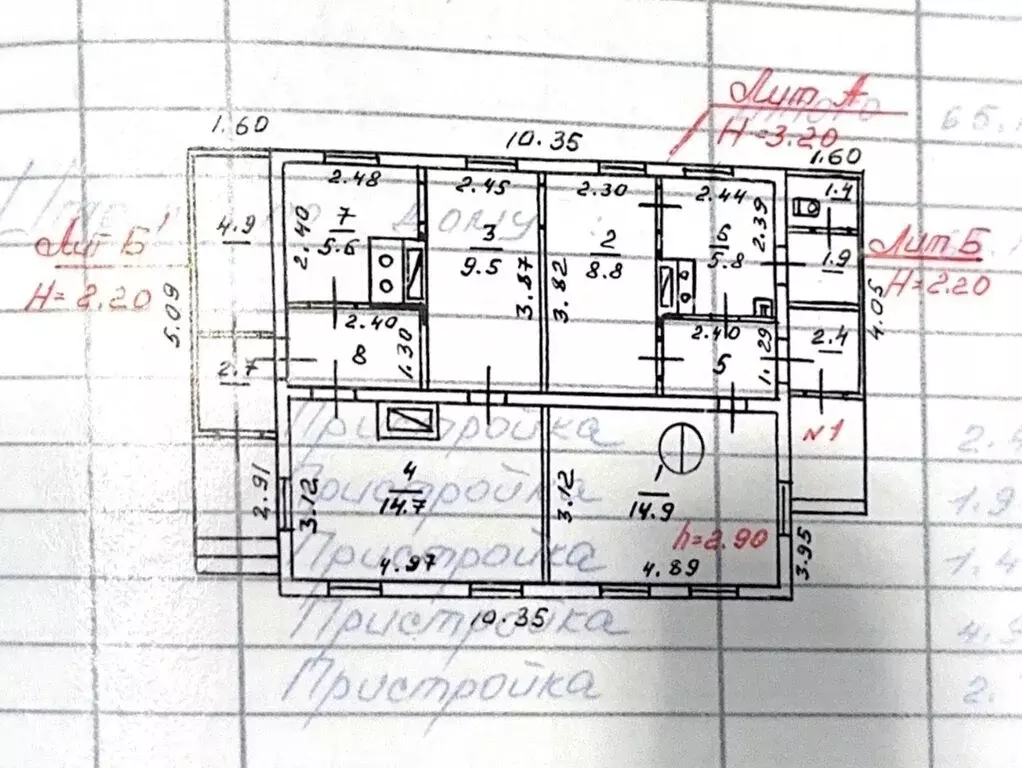 Лит А
Н=3.20
65.
1.60
10.35
1.60
2.48
2.45
2.30
2.44
1.4
4.9
7
5.6
2.40
3
9.5
3.87
2
8.8
3.82
6
5.8
2.39
1.9
Лит Б'
Н=2.20
5.09
Лит Б
Н=2.20
4.05
2.7
2.40
8
1.30
2.40
5
1.29
2.4
№1
Пристройка
2.4
2.91
3.12
4
14.7
3.12
1
14.9
h=2.90
3.95
Пристройка
1.9
Пристройка
1.4
4.97
4.89
10.35
Пристройка
4.9
Пристройка
2.